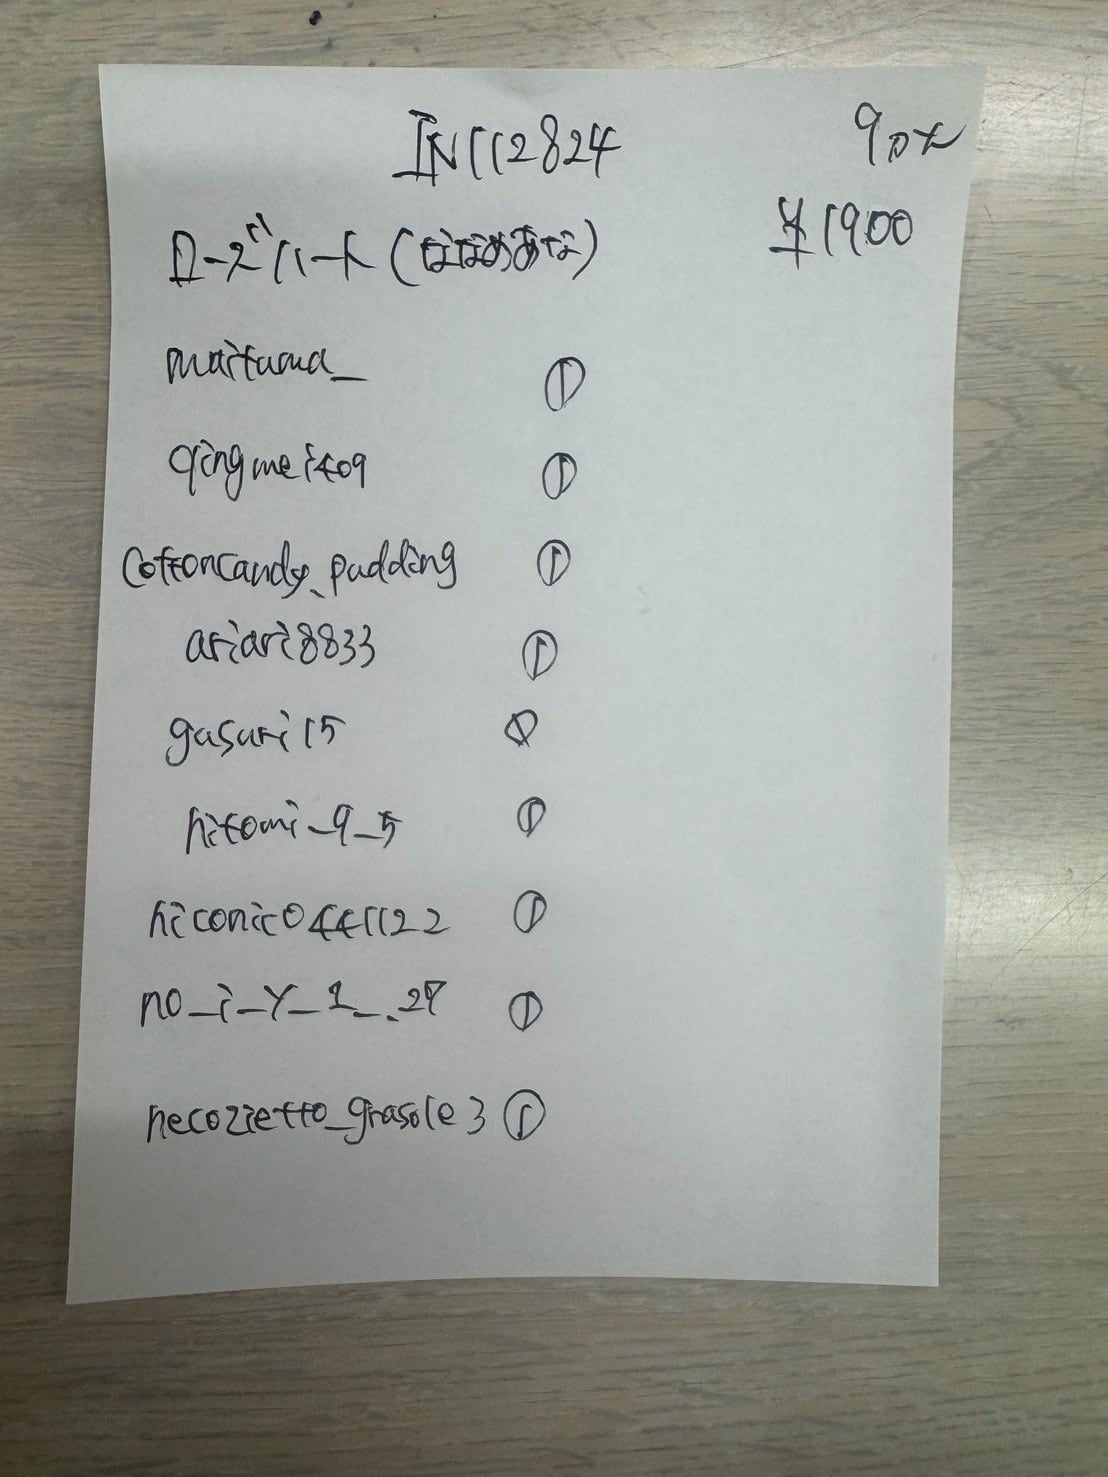 IN112824 9コメ
ローズハート(ななめあな) ¥1900
maituma_ ①
qingmei409 ①
cottoncandy_pudding ①
ariari8833 ①
gasuri15 ①
hitomi_9_5 ①
hiconico441122 ①
no_i_Y_1_.27 ①
necozietto_grasole3 ①